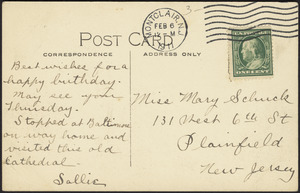 3-
MONTCLAIR, N.J.
FEB 6
-M
1911
POST CARD
CORRESPONDENCE
ADDRESS ONLY
Best wishes for a
happy birthday.
May see you
Thursday.
Stopped at Baltimore
on way home and
visited this old
Cathedral
Sallie
Miss Mary Schuck
131 West 6th St
Plainfield
New Jersey
ONE CENT